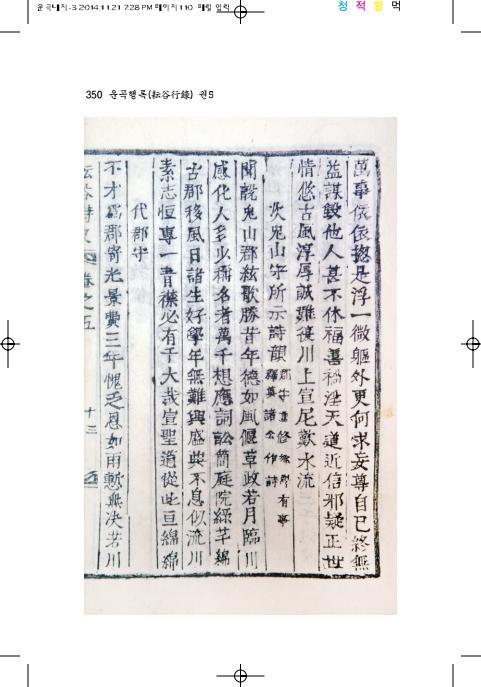 운곡내지-3 2014.11.21 7:28 PM 페이지110 매킬 입력
청 적 황 먹
350 운곡행록(耘谷行錄) 권5
萬事依依摠是浮一微軀外更何求妄尊自已終無
益謀毁他人甚不休福善禍淫天道近信邪疑正世
情悠古風淳厚誠難復川上宣尼歎水流
次兎山守所示詩韻
聞說兎山郡絃歌勝昔年德如風偃草政若月臨川
感化人多少稱名者萬千想應詞訟簡庭院綵芊綿
古郡移風日諸生好學年無難興盛典不息似流川
素志恒專一青襟必有千大哉宣聖道從此亘綿綿
代郡守
不才爲郡寄光景費三年愧乏恩如雨慙無决若川
耘谷詩史 卷之五 十三